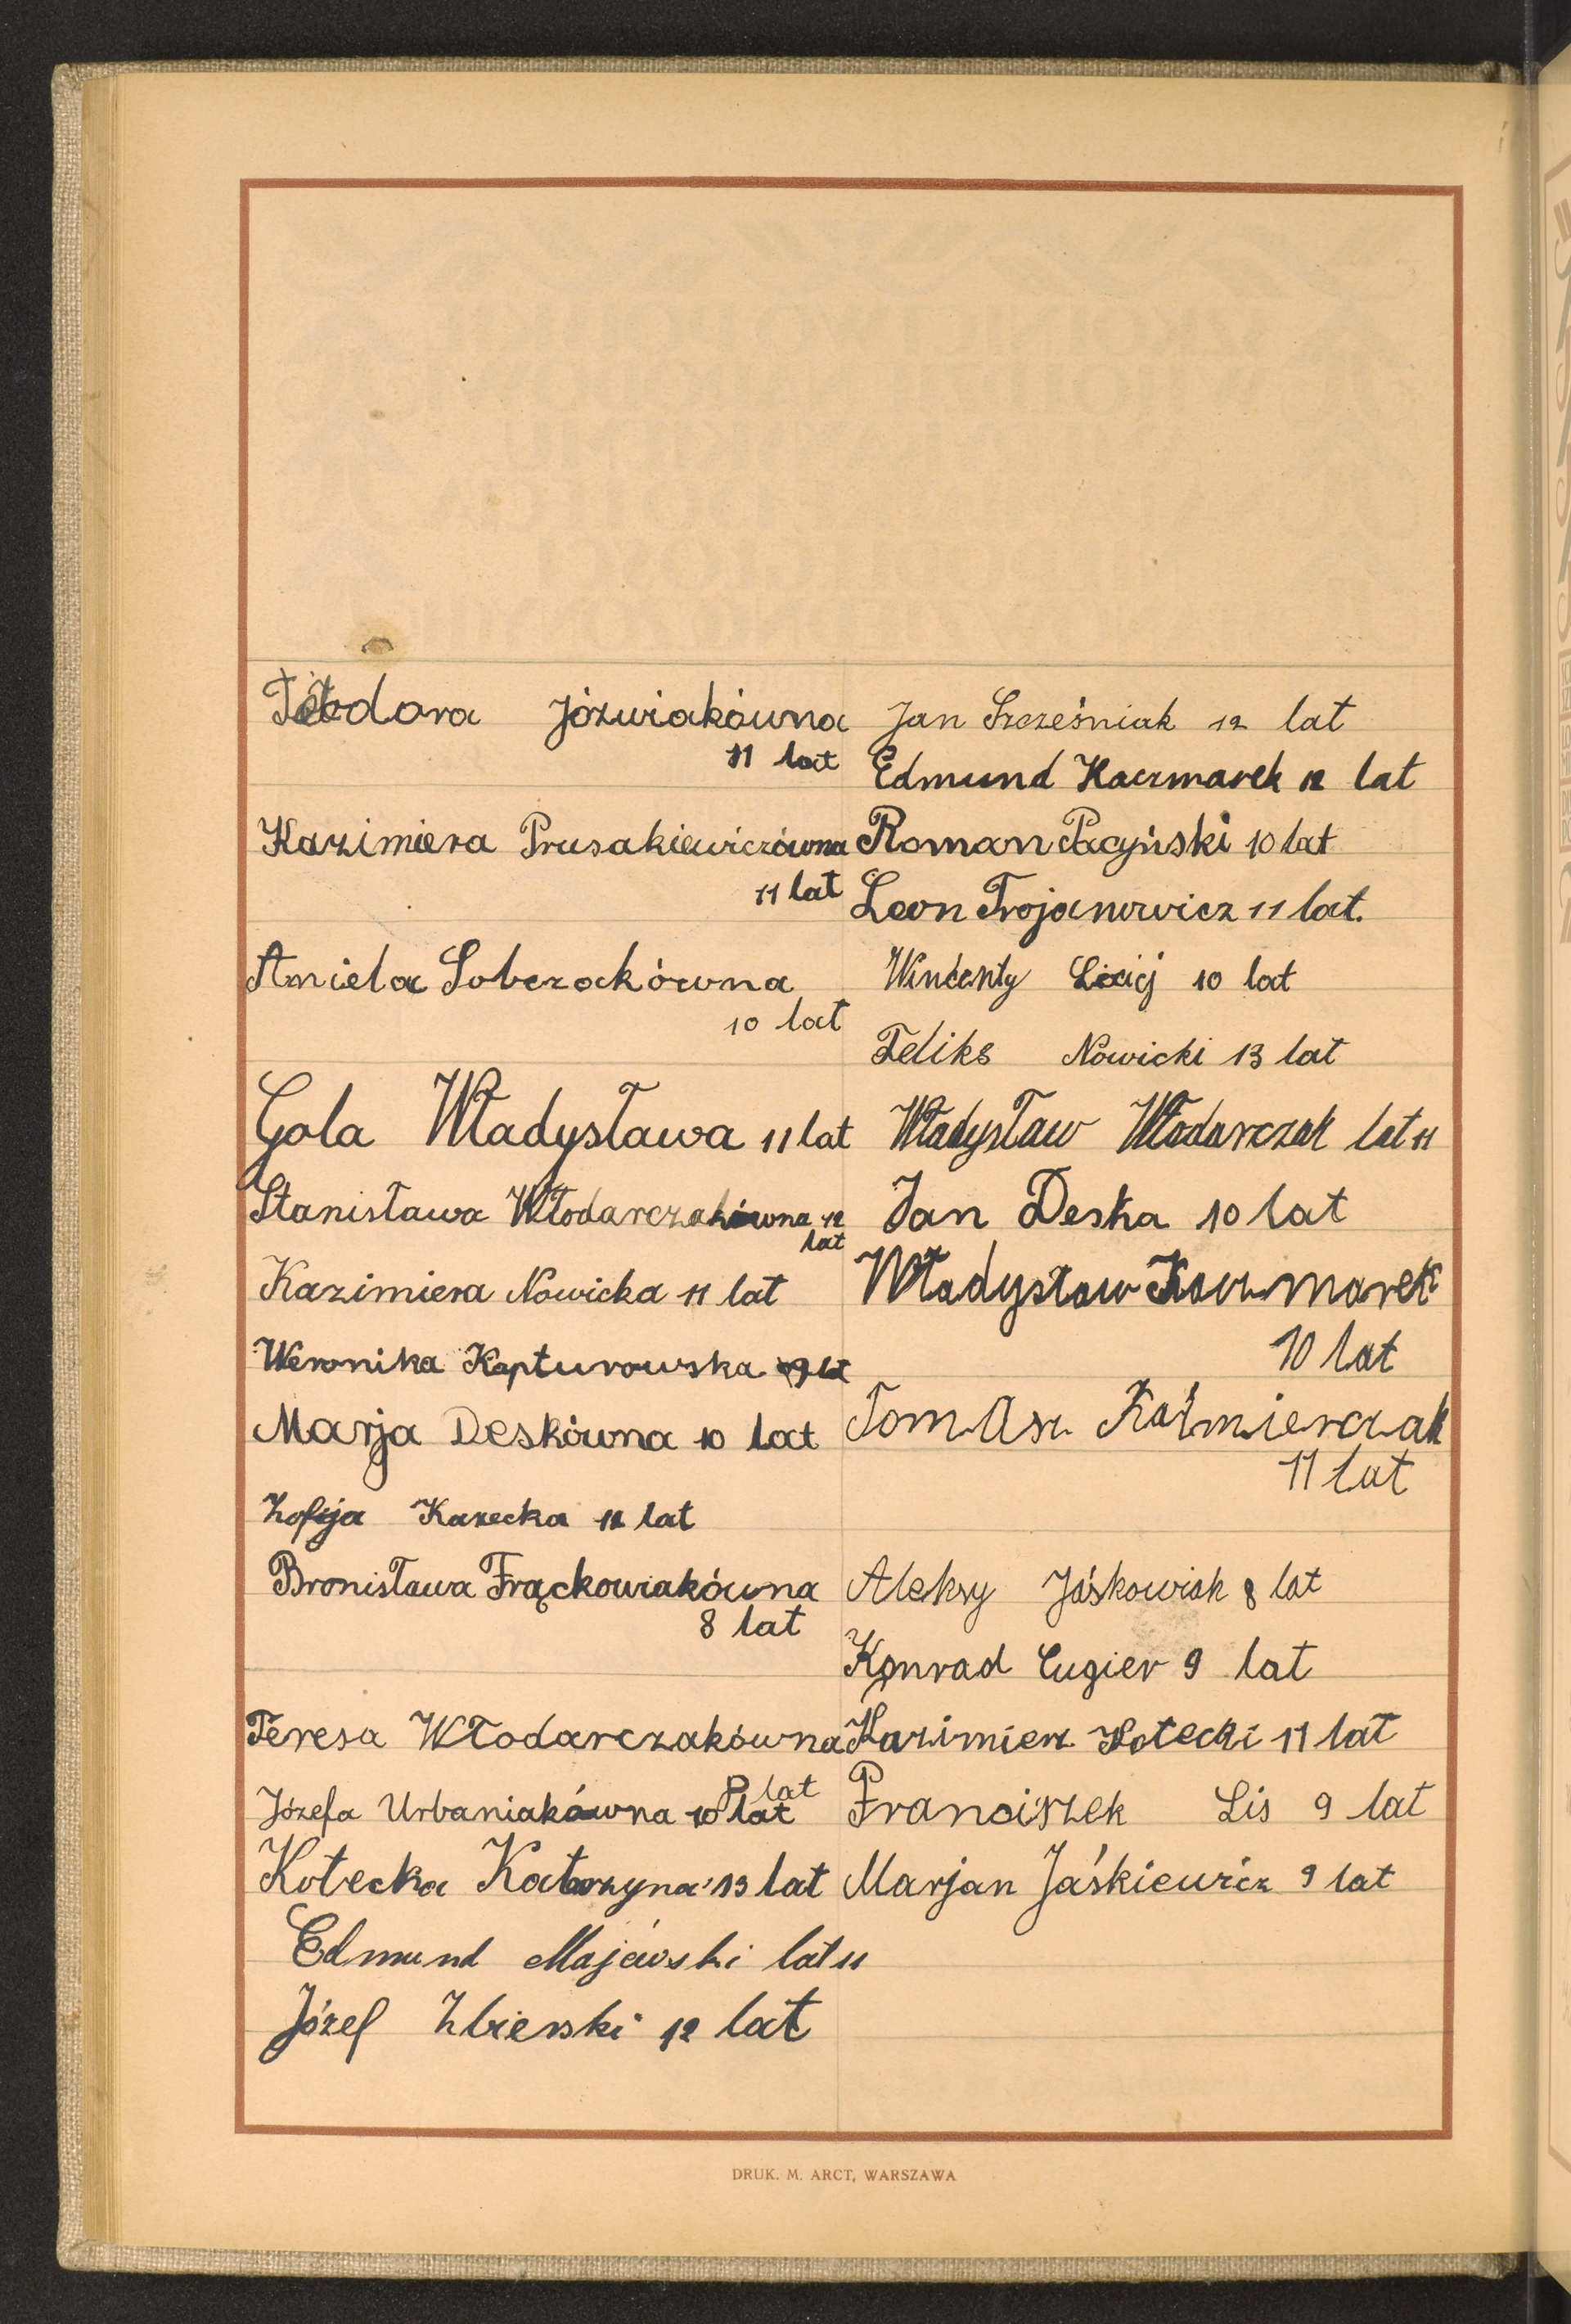 Teodora Józwiakówna
11 lat
Kazimiera Prusakiewiczówna
11 lat
Aniela Sobczakówna
10 lat
Gola Władysława 11 lat
Stanisława Włodarczakówna 12
lat
Kazimiera Nowicka 11 lat
Weronika Kapturowska 9 lat
Marja Deskówna 10 lat
Zofija Kasecka 12 lat
Bronisława Frąckowiakówna
8 lat
Teresa Włodarczakówna
8 lat
Józefa Urbaniakówna 10 lat
Kotecka Katarzyna 13 lat
Edmund Majewski lat 11
Józef Zbierski 12 lat
Jan Szcześniak 12 lat
Edmund Kaczmarek 12 lat
Roman Pacyński 10 lat
Leon Trojanowicz 11 lat.
Wincenty 10 lat
Feliks Nowicki 13 lat
Władysław Włodarczak lat 11
Jan Deska 10 lat
Władysław Kaczmarek
10 lat
Tomasz Kaźmierczak
11 lat
Aleksy Jáskowiak 8 lat
Konrad Cugier 9 lat
Kazimierz Kotecki 11 lat
Franciszek Lis 9 lat
Marjan Jaśkiewicz 9 lat
DRUK. M. ARCT, WARSZAWA